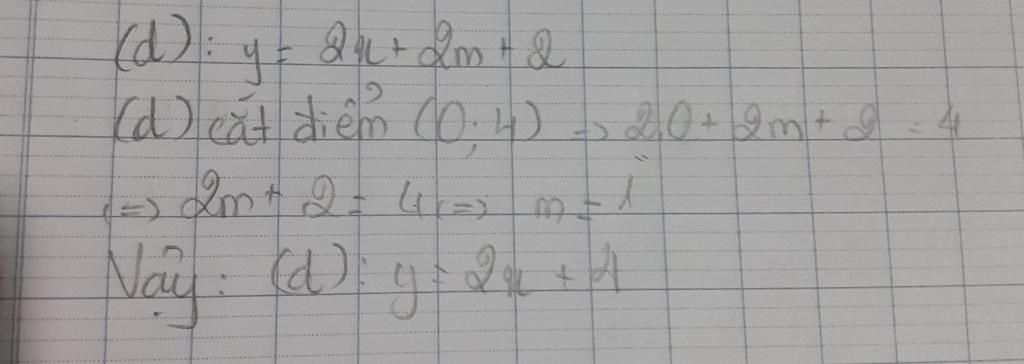 (d): y = 2x + 2m + 2
(d) cắt điểm (0;4) => 2.0 + 2m + 2 = 4
<=> 2m + 2 = 4 <=> m = 1
Vậy: (d): y = 2x + 4